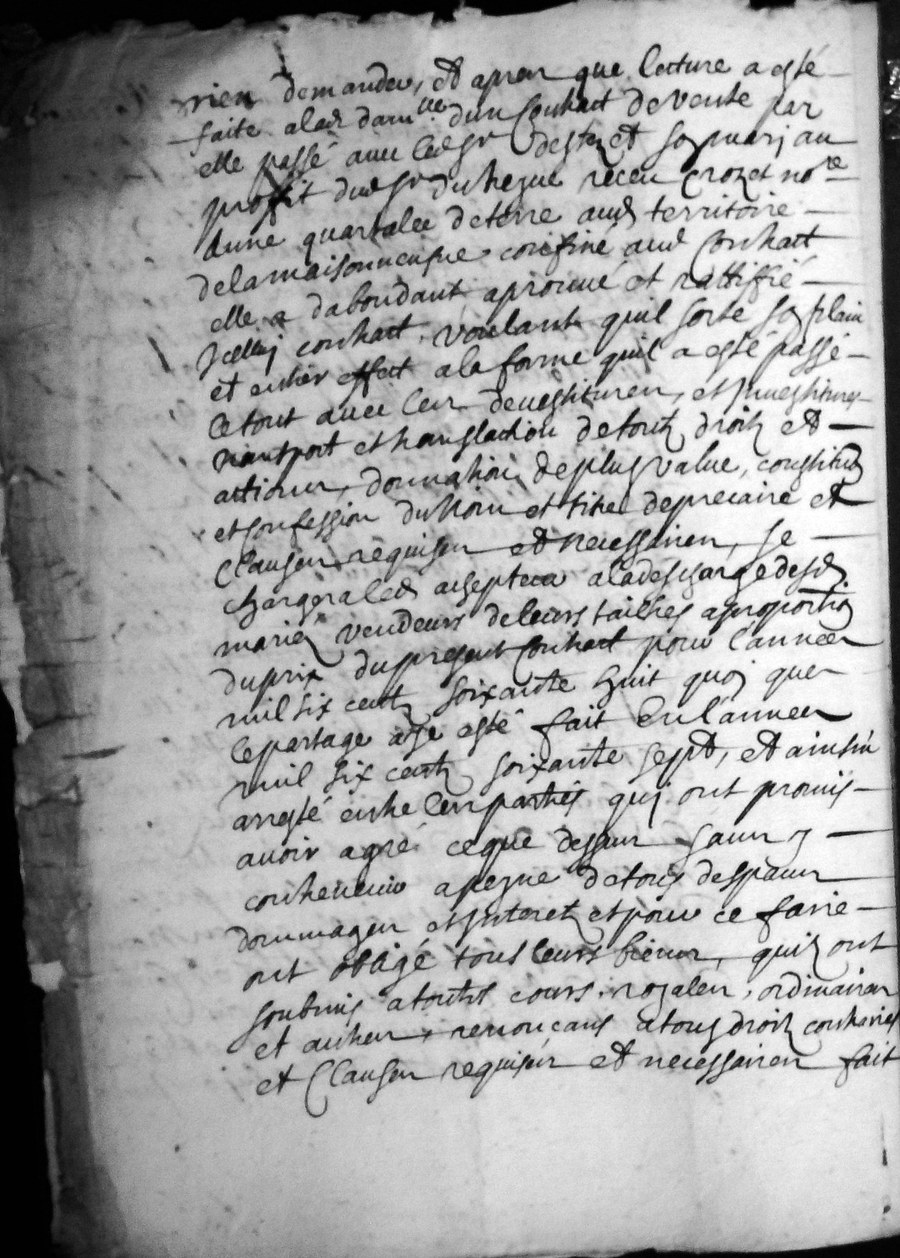 rien demander, et apres que lecture a esté
faite a lad dam.lle dun Contract de vente par
elle passé avec led Sr et son mari au
profit dud Sr receu Crozet no.re
dune quartalee de terre aud territoire
de la maison neufve confiné aud Contract
elle a dabondant aprouué et rattiffié
Icelluy contract, voulant quil sorte son plain
et entier effect a la forme quil a esté passé
Le tout avec leur devestitures, et Inuestitures
transport et translation de toutz droitz et
actions, donnation de plus value, constituon
et Confession du Nom et tiltre de precaire et
Clauses requises et necessaires, Se
chargera led a la descharge desd
mariez vendeurs de leurs tailhes a proportion
du prix du present Contract pour l'annee
mil six centz soixante huit quoy que
le partage aye esté fait En l'annee
mil six centz soixante sept, et ainsin
arresté entre les parties qui ont promis
avoir agré ce que dessus sans y
contrevenir a peyne de tous despans
dommages et Interetz et pour ce faire
ont obligé tous leurs biens, quilz ont
soubmis a toutes cours, royales, ordinaires
et autres, renonçans a tous droitz contraires
et Clauses requises et necessaires fait